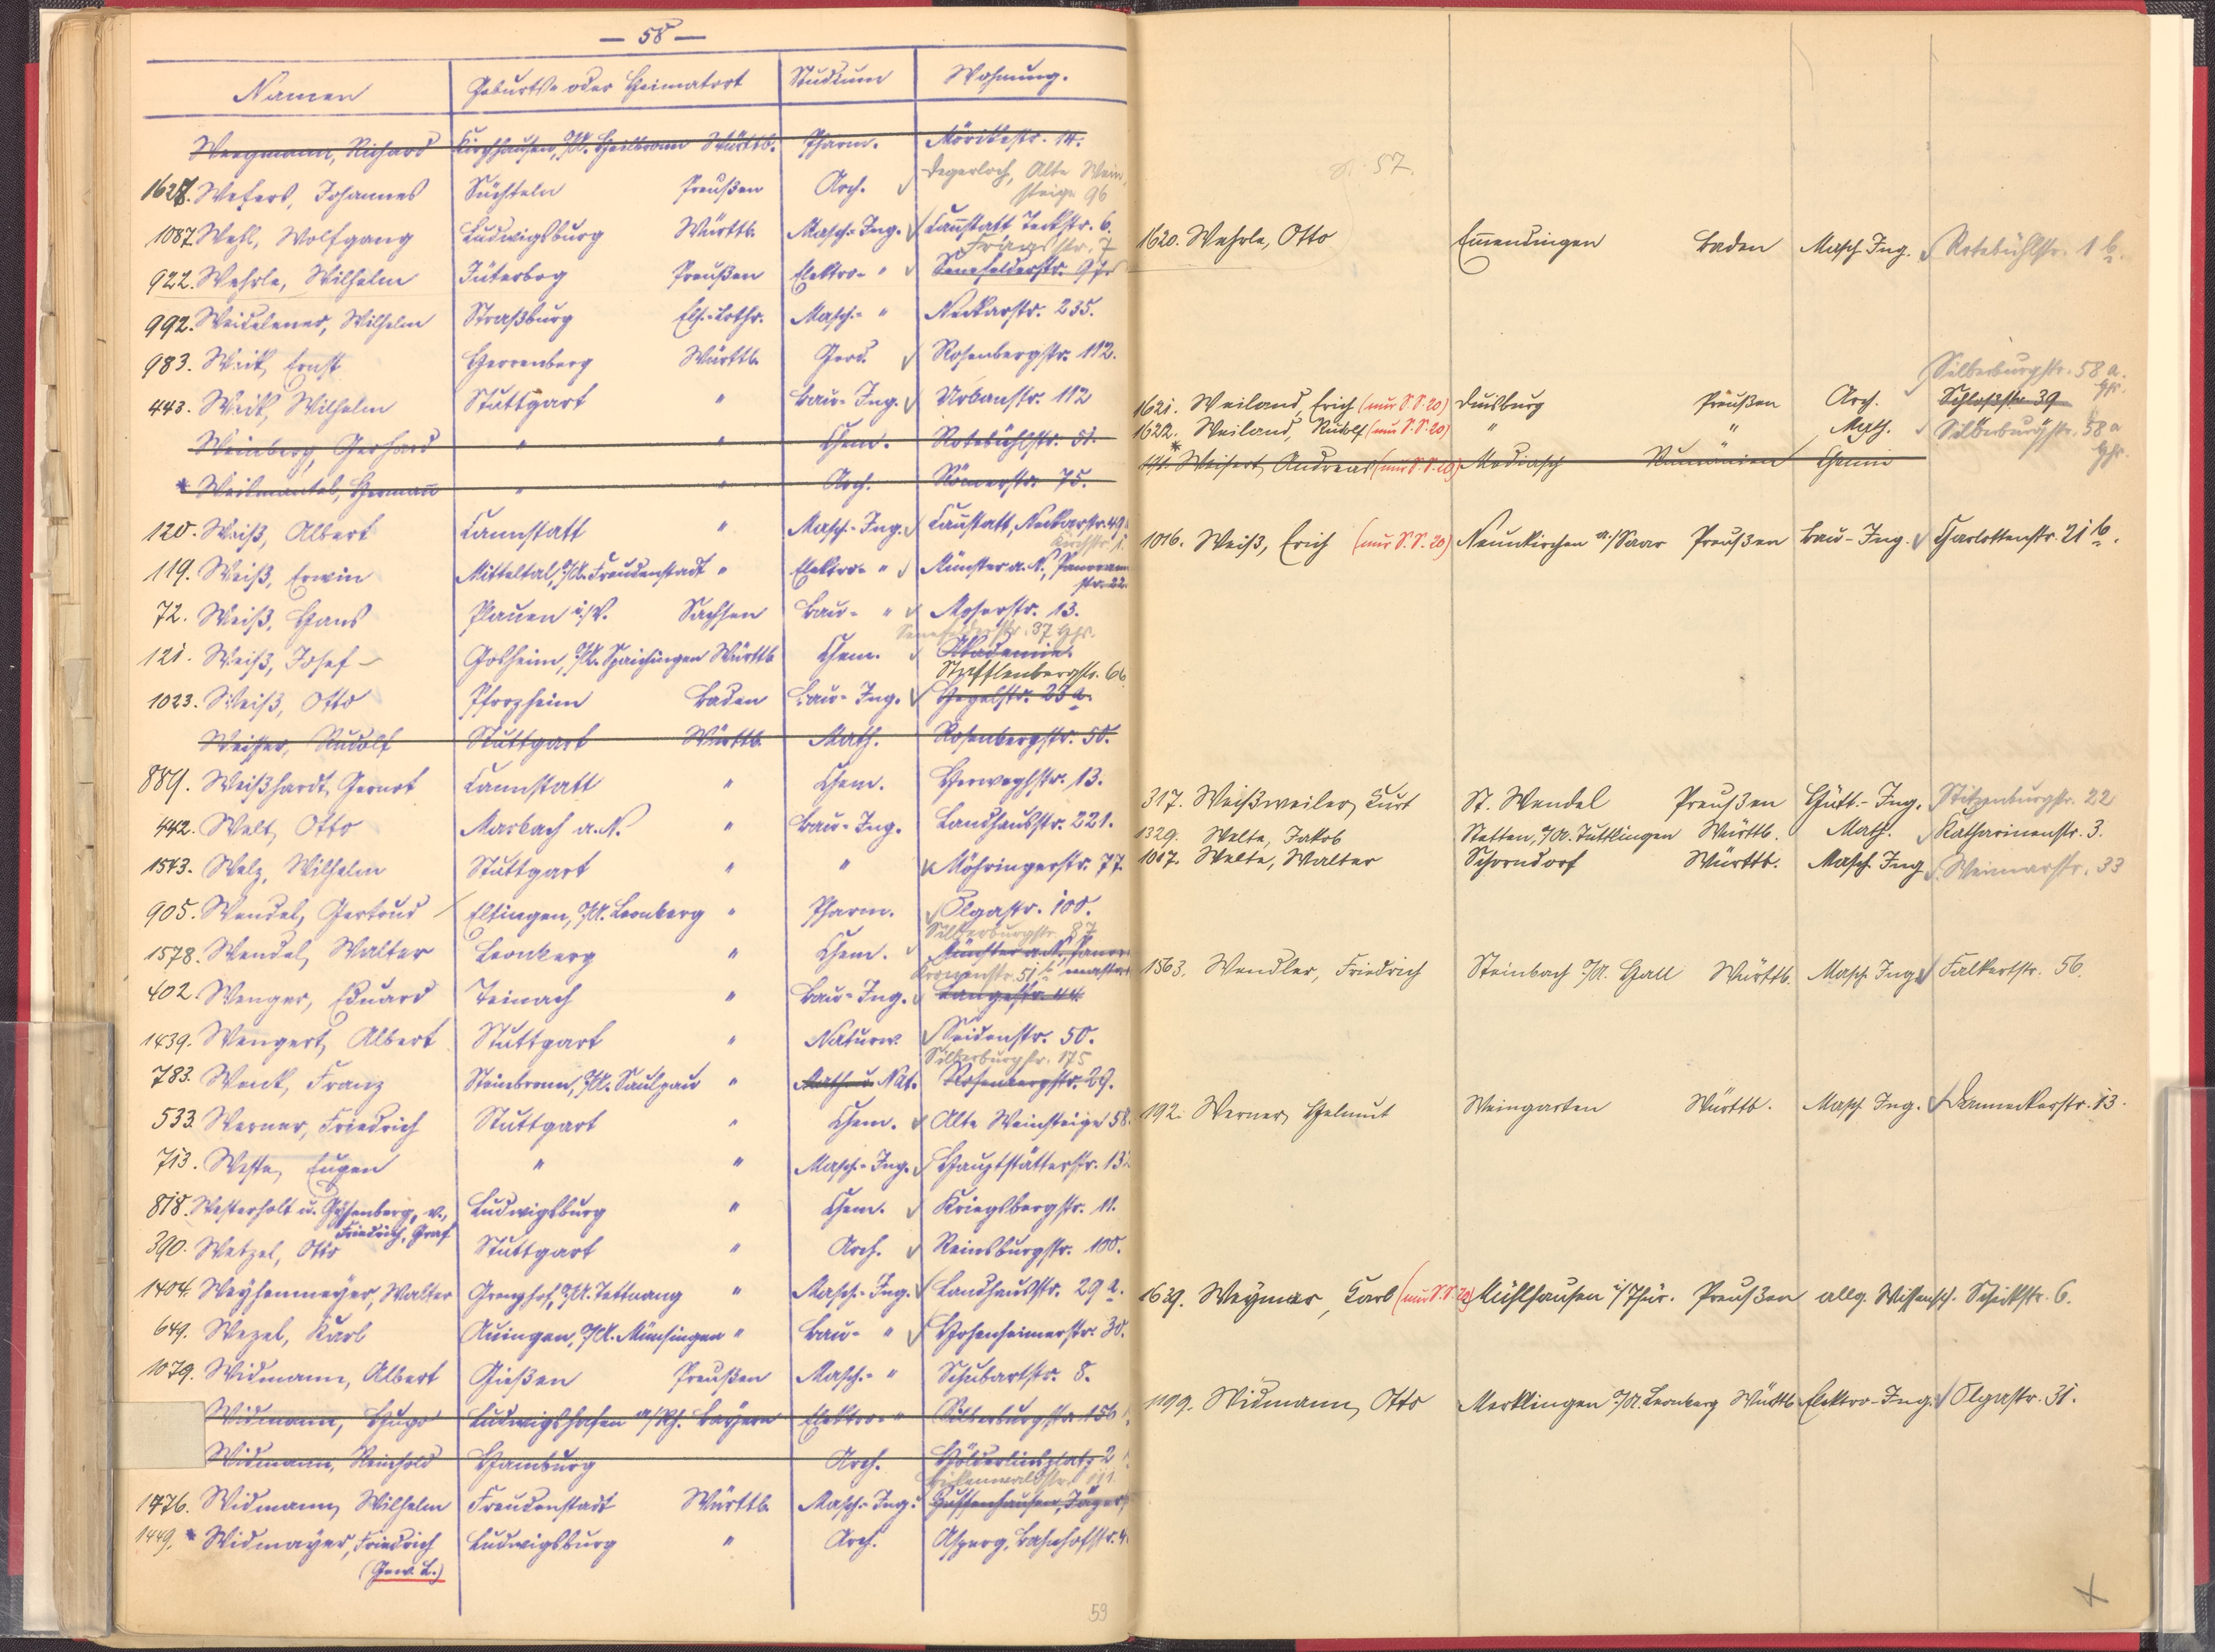 — 58 —
Namen Geburts- oder Heimatort Studium Wohnung.
Wengmann, Richard Kirchhausen, O/A. Heilbronn Württb. Pharm. Mörikestr. 14.
Degerloch, Alte Wein-
1628. Wefers, Johannes Süchteln Preußen Arch. steige 96
1087. Wehl, Wolfgang Ludwigsburg Württb. Masch.-Ing. Cannstatt Teckstr. 6.
922. Wehrle, Wilhelm Jüterbog Preußen Elektro- " Senefelderstr.
992. Weidelener, Wilhelm Straßburg Els.-Lothr. Masch.- " Neckarstr. 235.
983. Weik, Ernst Herrenberg Württb. Geod. Rosenbergstr. 112.
443. Weik, Wilhelm Stuttgart " Bau-Ing. Urbanstr. 112
Weinberg, Gerhard " " Chem. Rotebühlstr. 51.
* Weilmantel, Hermann " " Arch. Römerstr. 75.
120. Weiß, Albert Cannstatt " Masch.-Ing. Cannstatt, Neckarstr. 49.
Kirchstr. 1.
119. Weiß, Erwin Mitteltal, O/A. Freudenstadt " Elektro- " Münster a. N., Panorama
str. 22.
72. Weiß, Hans Plauen i/V. Sachsen Bau- " Moserstr. 13.
Senefelderstr. 37 Hhs.
121. Weiß, Josef Gosheim, O/A. Spaichingen Württb. Chem. Akademie.
Stafflenbergstr. 66
1023. Weiß, Otto Pforzheim Baden Bau-Ing. Hegelstr. 23a.
Weisser, Rudolf Stuttgart Württb. Math. Rosenbergstr. 50.
889. Weißhardt, Gernot Cannstatt " Chem. Herweghstr. 13.
442. Welt, Otto Marbach a. N. " Bau-Ing. Landhausstr. 221.
1543. Welz, Wilhelm Stuttgart " " Möhringerstr. 77.
905. Wendel, Gertrud Eltingen, O/A. Leonberg " Pharm. Olgastr. 100.
Silberburgstr. 87
1578. Wendel, Walter Leonberg " Chem. Münster a. N., Panora
Kronenstr. 51
402. Wenger, Eduard Teinach " Bau-Ing. Langestr. 44
1439. Wengert, Albert Stuttgart " Naturw. Seidenstr. 50.
Silberburgstr. 175
783. Wenk, Franz Steinbronn, O/A. Saulgau " Math. u. Nat. Rosenbergstr. 29.
533. Werner, Friedrich Stuttgart " Chem. Alte Weinsteige 58.
713. Weste, Eugen " " Masch.-Ing. Hauptstätterstr. 132
818. Westerholt u. Gysenberg, v., Ludwigsburg " Chem. Kriegsbergstr. 11.
Friedrich, Graf
390. Wetzel, Otto Stuttgart " Arch. Reinsburgstr. 100.
1404. Weyhenmeyer, Walter Grenzhof, O/A. Tettnang " Masch.-Ing. Landhausstr. 29a.
649. Wezel, Karl Auingen, O/A. Münsingen " Bau- " Hohenheimerstr. 30.
1079. Widmann, Albert Gießen Preußen Masch.- " Schubartstr. 8.
Widmann, Hugo Ludwigshafen a/Rh. Bayern Elektro- " Silberburgstr. 156
Widmann, Reinhold Hamburg Arch. Hölderlinsplatz 2
Birkenwaldstr. 111.
1476. Widmann, Wilhelm Freudenstadt Württb. Masch.-Ing. Zuffenhausen, Jäger
1449. * Widmayer, Friedrich Ludwigsburg " Arch. Asperg, Bahnhofstr. 4
(Gew. L.)
59
S. 57.
1620. Wehrle, Otto Emmendingen Baden Masch. Ing. Rotebühlstr. 1 b.
Silberburgstr. 58 a.
Hhs.
1621. Weiland, Erich (nur S.S. 20) Duisburg Preußen Arch. Schloßstr. 39
1622. Weiland, Rudolf (nur S.S. 20) " " Math. Silberburgstr. 58 a
Hhs.
* 141. Weisert, Andreas (nur S.S. 20) Mediasch Rumänien Chemie
1016. Weiß, Erich (nur S.S. 20) Neunkirchen a./Saar Preußen Bau-Ing. Charlottenstr. 21 b.
317. Weißweiler, Kurt St. Wendel Preußen Hütt.-Ing. Stitzenburgstr. 22
1329. Welte, Jakob Stetten, O/A. Tuttlingen Württb. Math. Katharinenstr. 3.
1017. Welte, Walter Schorndorf Württb. Masch. Ing. Weimarstr. 33
1563. Wendler, Friedrich Steinbach O/A. Hall Württb. Masch. Ing. Falkertstr. 56.
192. Werner, Helmut Weingarten Württb. Masch. Ing. Danneckerstr. 13.
1639. Weymar, Karl (nur S.S. 20) Mühlhausen i/Thür. Preußen allg. Wissensch. Schickstr. 6.
1199. Widmann, Otto Merklingen O/A. Leonberg Württb. Elektro-Ing. Olgastr. 31.